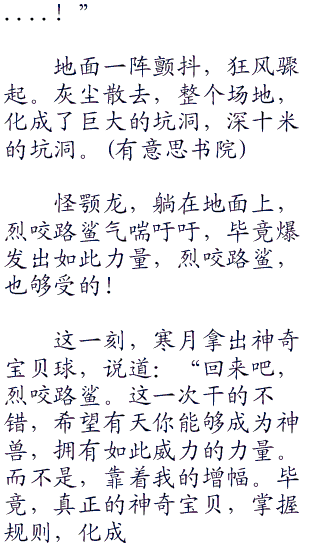 ....！”
地面一阵颤抖，狂风骤
起。灰尘散去，整个场地，
化成了巨大的坑洞，深十米
的坑洞。(有意思书院)
怪颚龙，躺在地面上，
烈咬路鲨气喘吁吁，毕竟爆
发出如此力量，烈咬路鲨，
也够受的！
这一刻，寒月拿出神奇
宝贝球，说道：“回来吧，
烈咬路鲨。这一次干的不
错，希望有天你能够成为神
兽，拥有如此威力的力量。
而不是，靠着我的增幅。毕
竟，真正的神奇宝贝，掌握
规则，化成